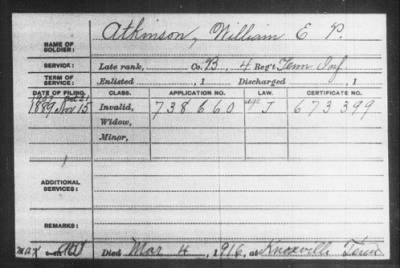 NAME OF SOLDIER: Atkinson, William E. P.
SERVICE: Late rank, Co. B, 4 Reg't Tenn Inf
TERM OF SERVICE: Enlisted , 1 Discharged , 1
DATE OF FILING. CLASS. APPLICATION NO. LAW. CERTIFICATE NO.
1889 Nov 15 Invalid, 738660 J 673399
Widow,
Minor,
ADDITIONAL SERVICES:
REMARKS:
Died Mar 4, 1916, at Knoxville Tenn